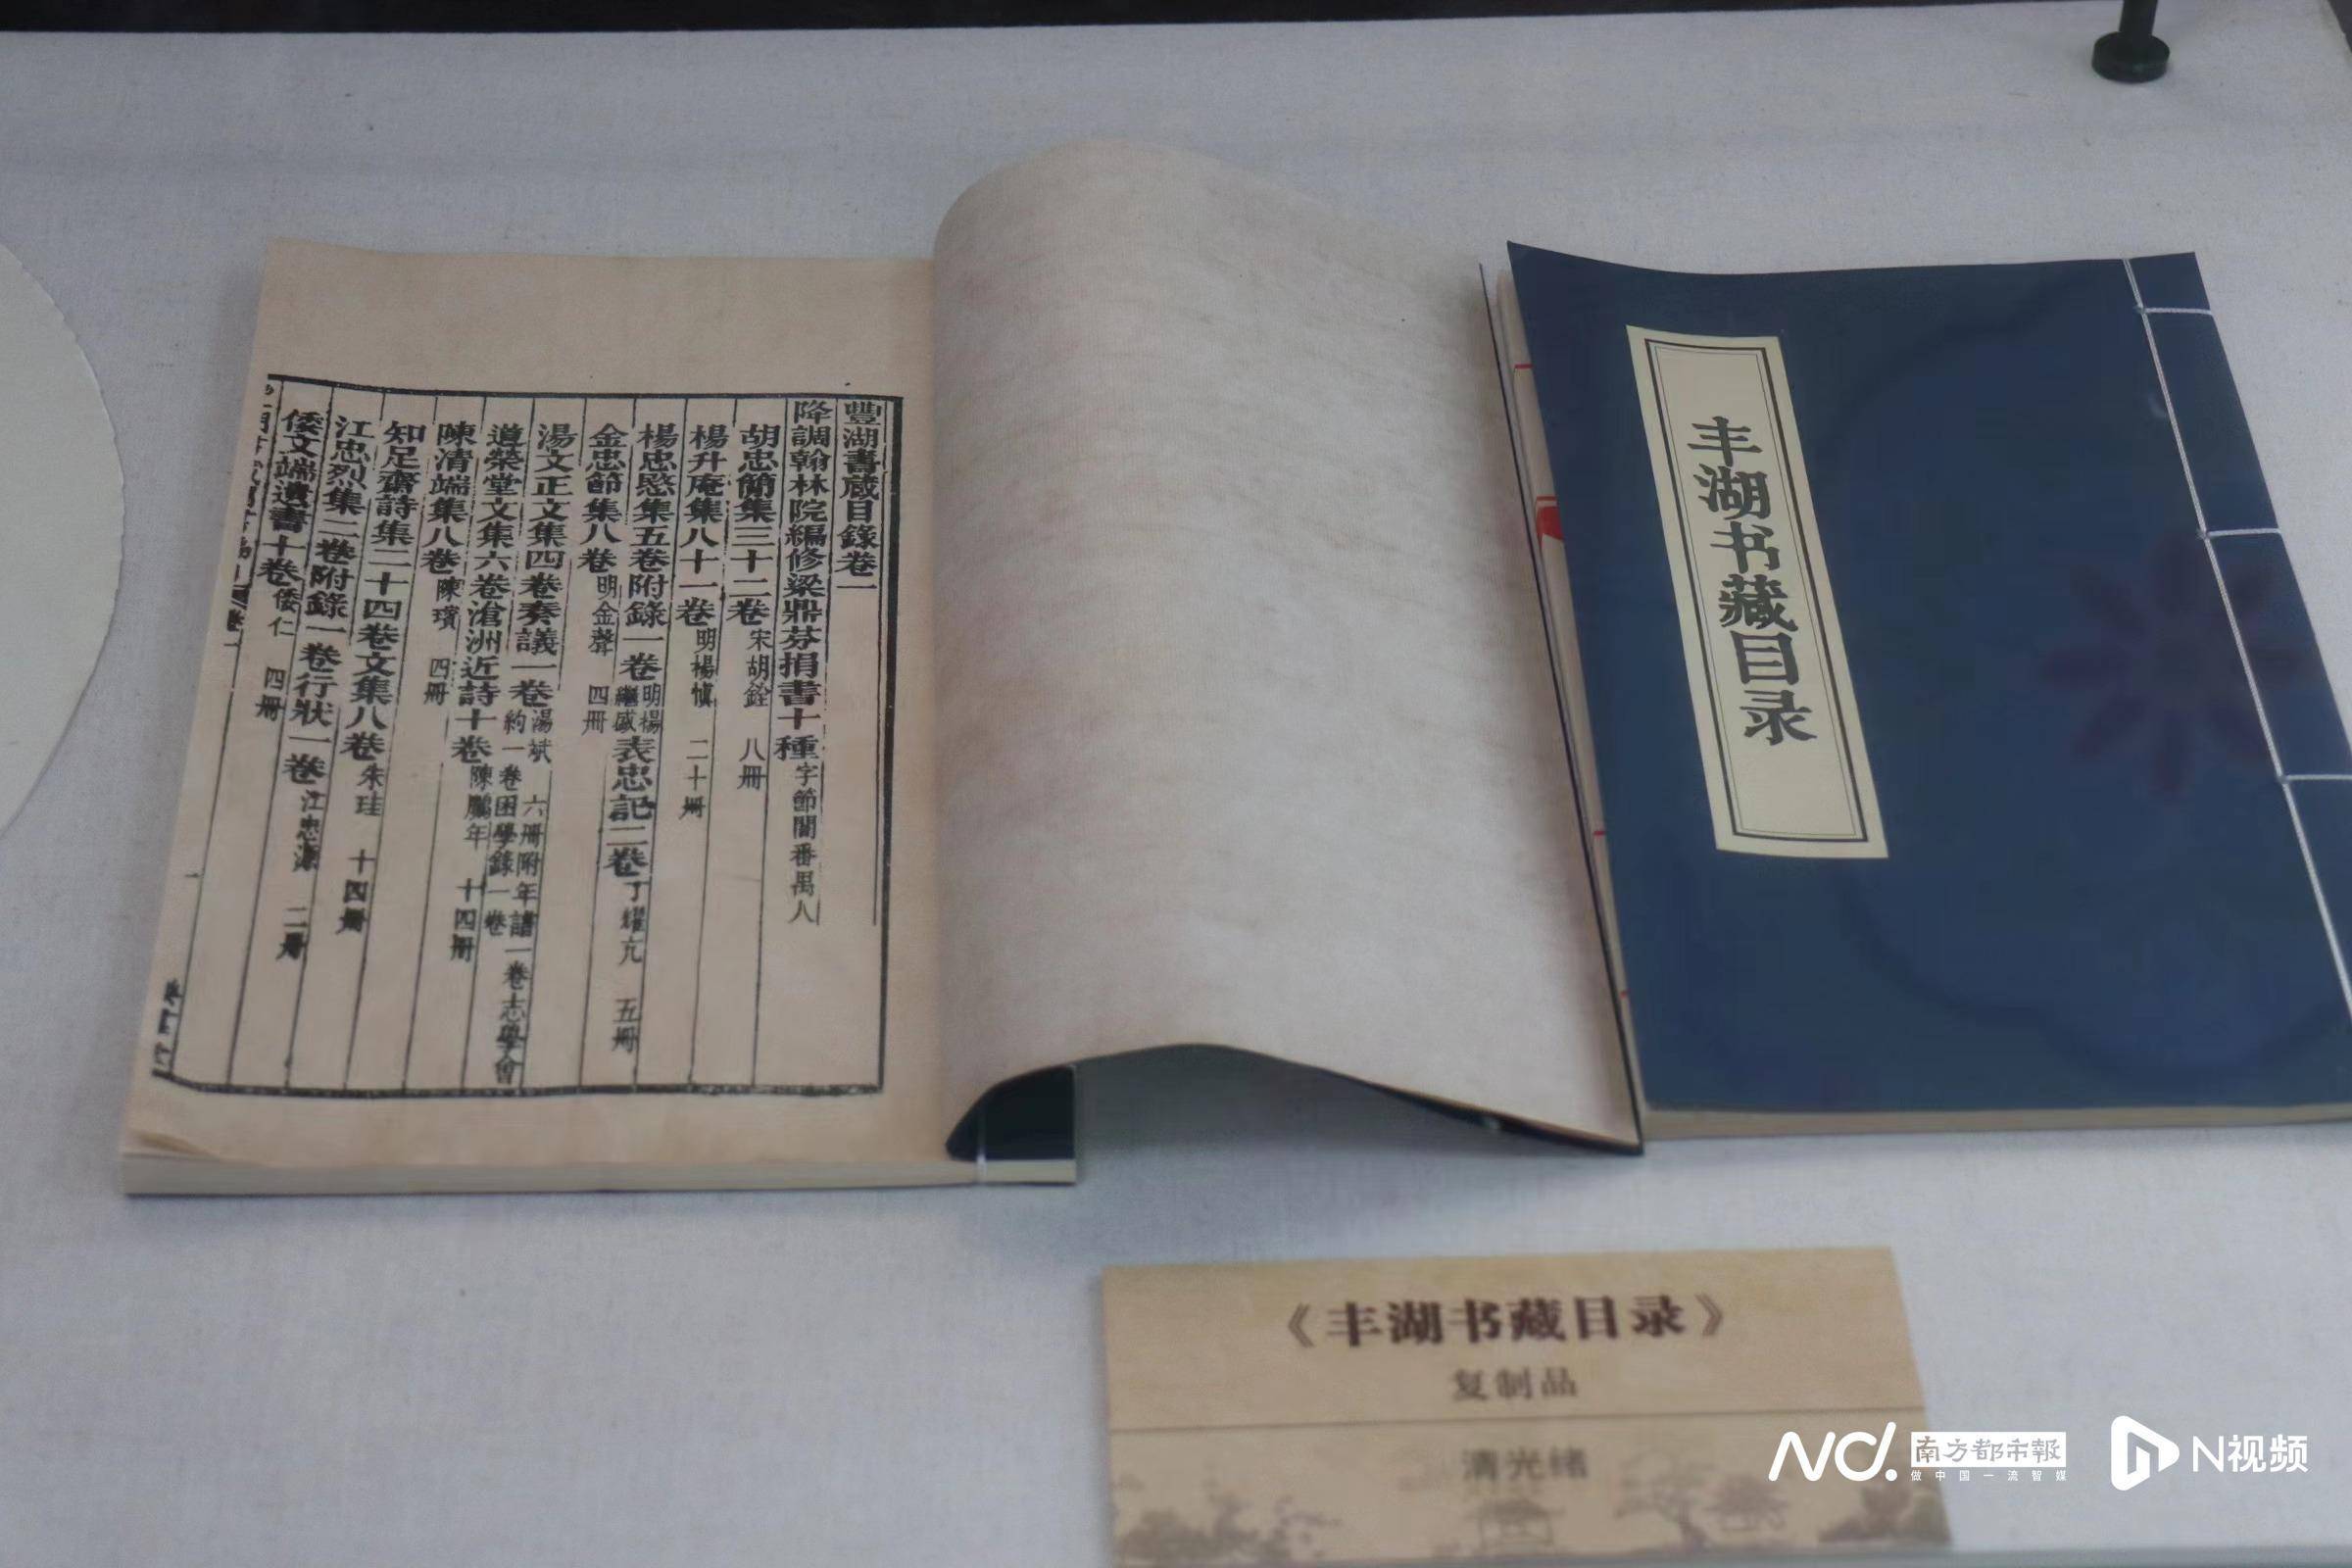 豐湖書藏目錄卷一
降調翰林院編修梁鼎芬捐書十種字節闇番禺人
胡忠簡集三十二卷宋胡銓 八冊
楊升庵集八十一卷明楊慎 二十冊
楊忠愍集五卷附錄一卷明楊繼盛表忠記二卷丁耀亢 五冊
金忠節集八卷明金聲 四冊
湯文正文集四卷奏議一卷湯斌 六冊附年譜一卷志學會約一卷困學錄一卷
道榮堂文集六卷滄洲近詩十卷陳鵬年 十四冊
陳清端集八卷陳璸 四冊
知足齋詩集二十四卷文集八卷朱珪 十四冊
江忠烈集二卷附錄一卷行狀一卷江忠源 二冊
倭文端遺書十卷倭仁 四冊
丰湖书藏目录
《丰湖书藏目录》
复制品
清光绪
南方都市報
做中国一流智媒
N视频